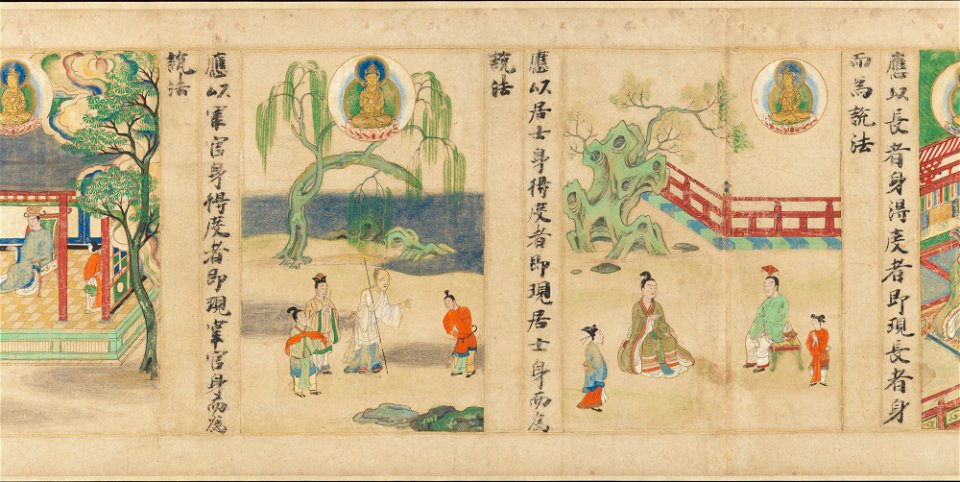 應以長者身得度者即現長者身
而為說法
應以居士身得度者即現居士身而為
說法
應以宰官身得度者即現宰官身而為
說法